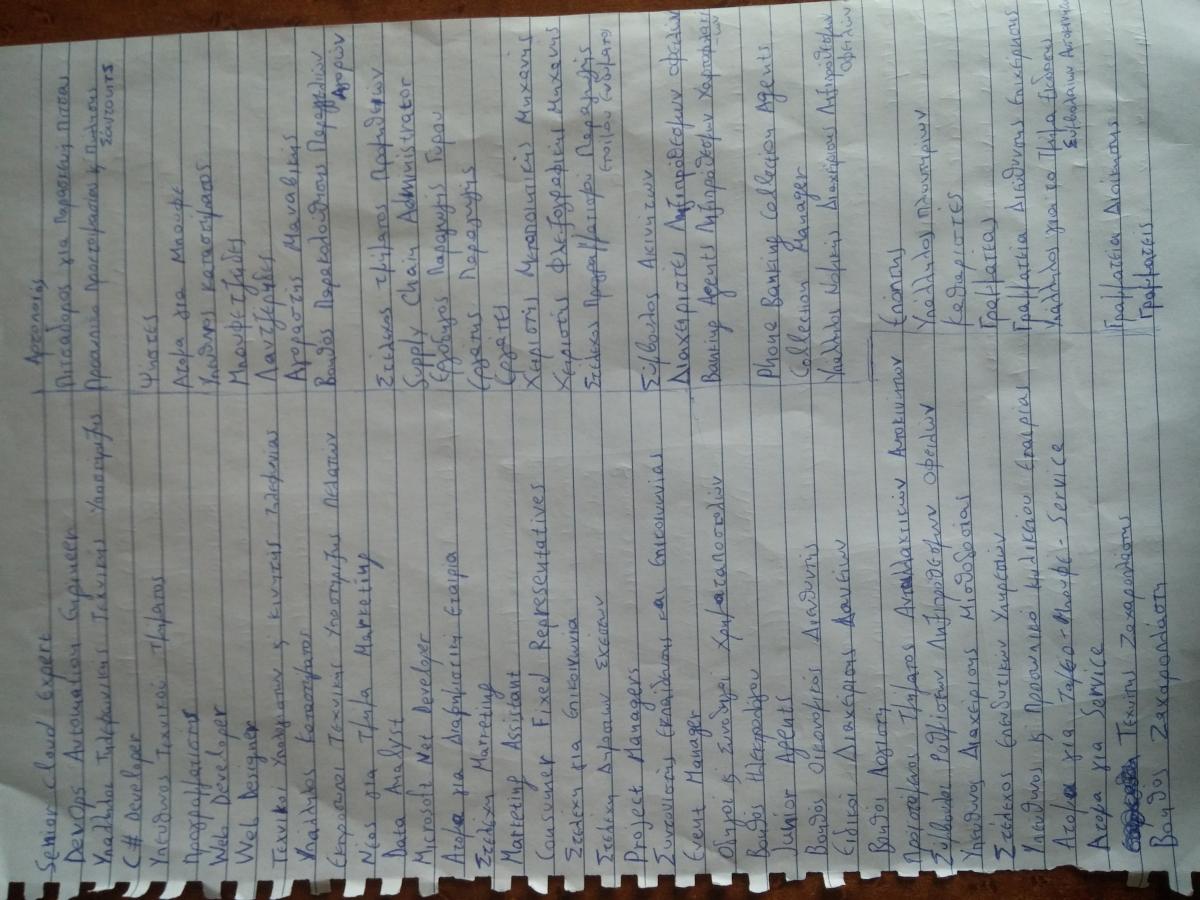 Senior Cloud Expert
DevOps Automation Engineer
Υπάλληλοι Τηλεφωνικής Τεχνικής Υποστήριξης
C# Developer
Υπεύθυνος Τεχνικού Τμήματος
Προγραμματιστής
Web Developer
Web Designer
Τεχνικοί Υπολογιστών & κινητής τηλεφωνίας
Υπάλληλος Καταστήματος
Εκπρόσωποι Τεχνικής Υποστήριξης Πελατών
Νέος για Τμήμα Marketing
Data Analyst
Microsoft Net Developer
Άτομα για Διαφημιστική Εταιρία
Στέλεχη Marketing
Marketing Assistant
Consumer Fixed Representatives
Στελέχη για επικοινωνία
Στελέχη Δημοσίων Σχέσεων
Project Managers
Συντονιστής Εκπαίδευσης και Επικοινωνίας
Event Manager
Οδηγοί & Συνοδηγοί Χρηματαποστολών
Βοηθοί Ηλεκτρολόγου
Junior Agents
Βοηθός Οικονομικός Διευθυντής
Ειδικοί Διαχείρισης Δανείων
Βοηθοί Λογιστή
Προϊστάμενοι Τμήματος Ανταλλακτικών Αυτοκινήτων
Σύμβουλοι Ρυθμίσεων Ληξιπρόθεσμων οφειλών
Υπεύθυνη Διαχείρισης Μισθοδοσίας
Στέλεχος Επενδυτικών Υπηρεσιών
Υπεύθυνος & Προσωπικό Κυλικείου Εταιρίας
Άτομα για Ταμείο - Μπουφέ - Service
Άτομα για Service
Τεχνίτης Ζαχαροπλάστης
Βοηθοί Ζαχαροπλάστη
Αρτοποιός
Πιτσαδόρος για Παρασκευή Πίτσας
Προσωπικό Προετοιμασίας & Πώλησης
Σάντουιτς
Ψήστες
Άτομα για Μπουφέ
Υπεύθυνος καταστήματος
Μπουφετζήδες
Λαντζέρηδες
Αγοραστής Μαναβικής
Βοηθός Παρακολούθησης Παραγγελιών
Αγορών
Στέλεχος τμήματος Προμηθειών
Supply Chain Administrator
Εργοδηγός Παραγωγής Γύρου
Εργάτης Παραγωγής
Εργάτες
Χειριστής Μεταποιητικής Μηχανής
Χειριστής Φλεξογραφικής Μηχανής
Στέλεχος Προγραμματισμού Παραγωγής
Ετοίμου Ενδύματος
Σύμβουλος Ακινήτων
Διαχειριστές Ληξιπρόθεσμων οφειλών
Banking Agents Ληξιπρόθεσμων Χαρτοφυλακίων
Phone Banking Collection Agents
Collection Manager
Υπάλληλος Νομικής Διαχείρισης Ληξιπρόθεσμων
Οφειλών
Επόπτης
Υπάλληλος Πλυντηρίων
Καθαριστές
Γραμματέας
Γραμματεία Διεύθυνσης Επιχείρησης
Υπάλληλος για το Τμήμα Έκδοσης
Συμβολαίων Αυτοκινήτων
Γραμματεία Διοίκησης
Γραμματείς